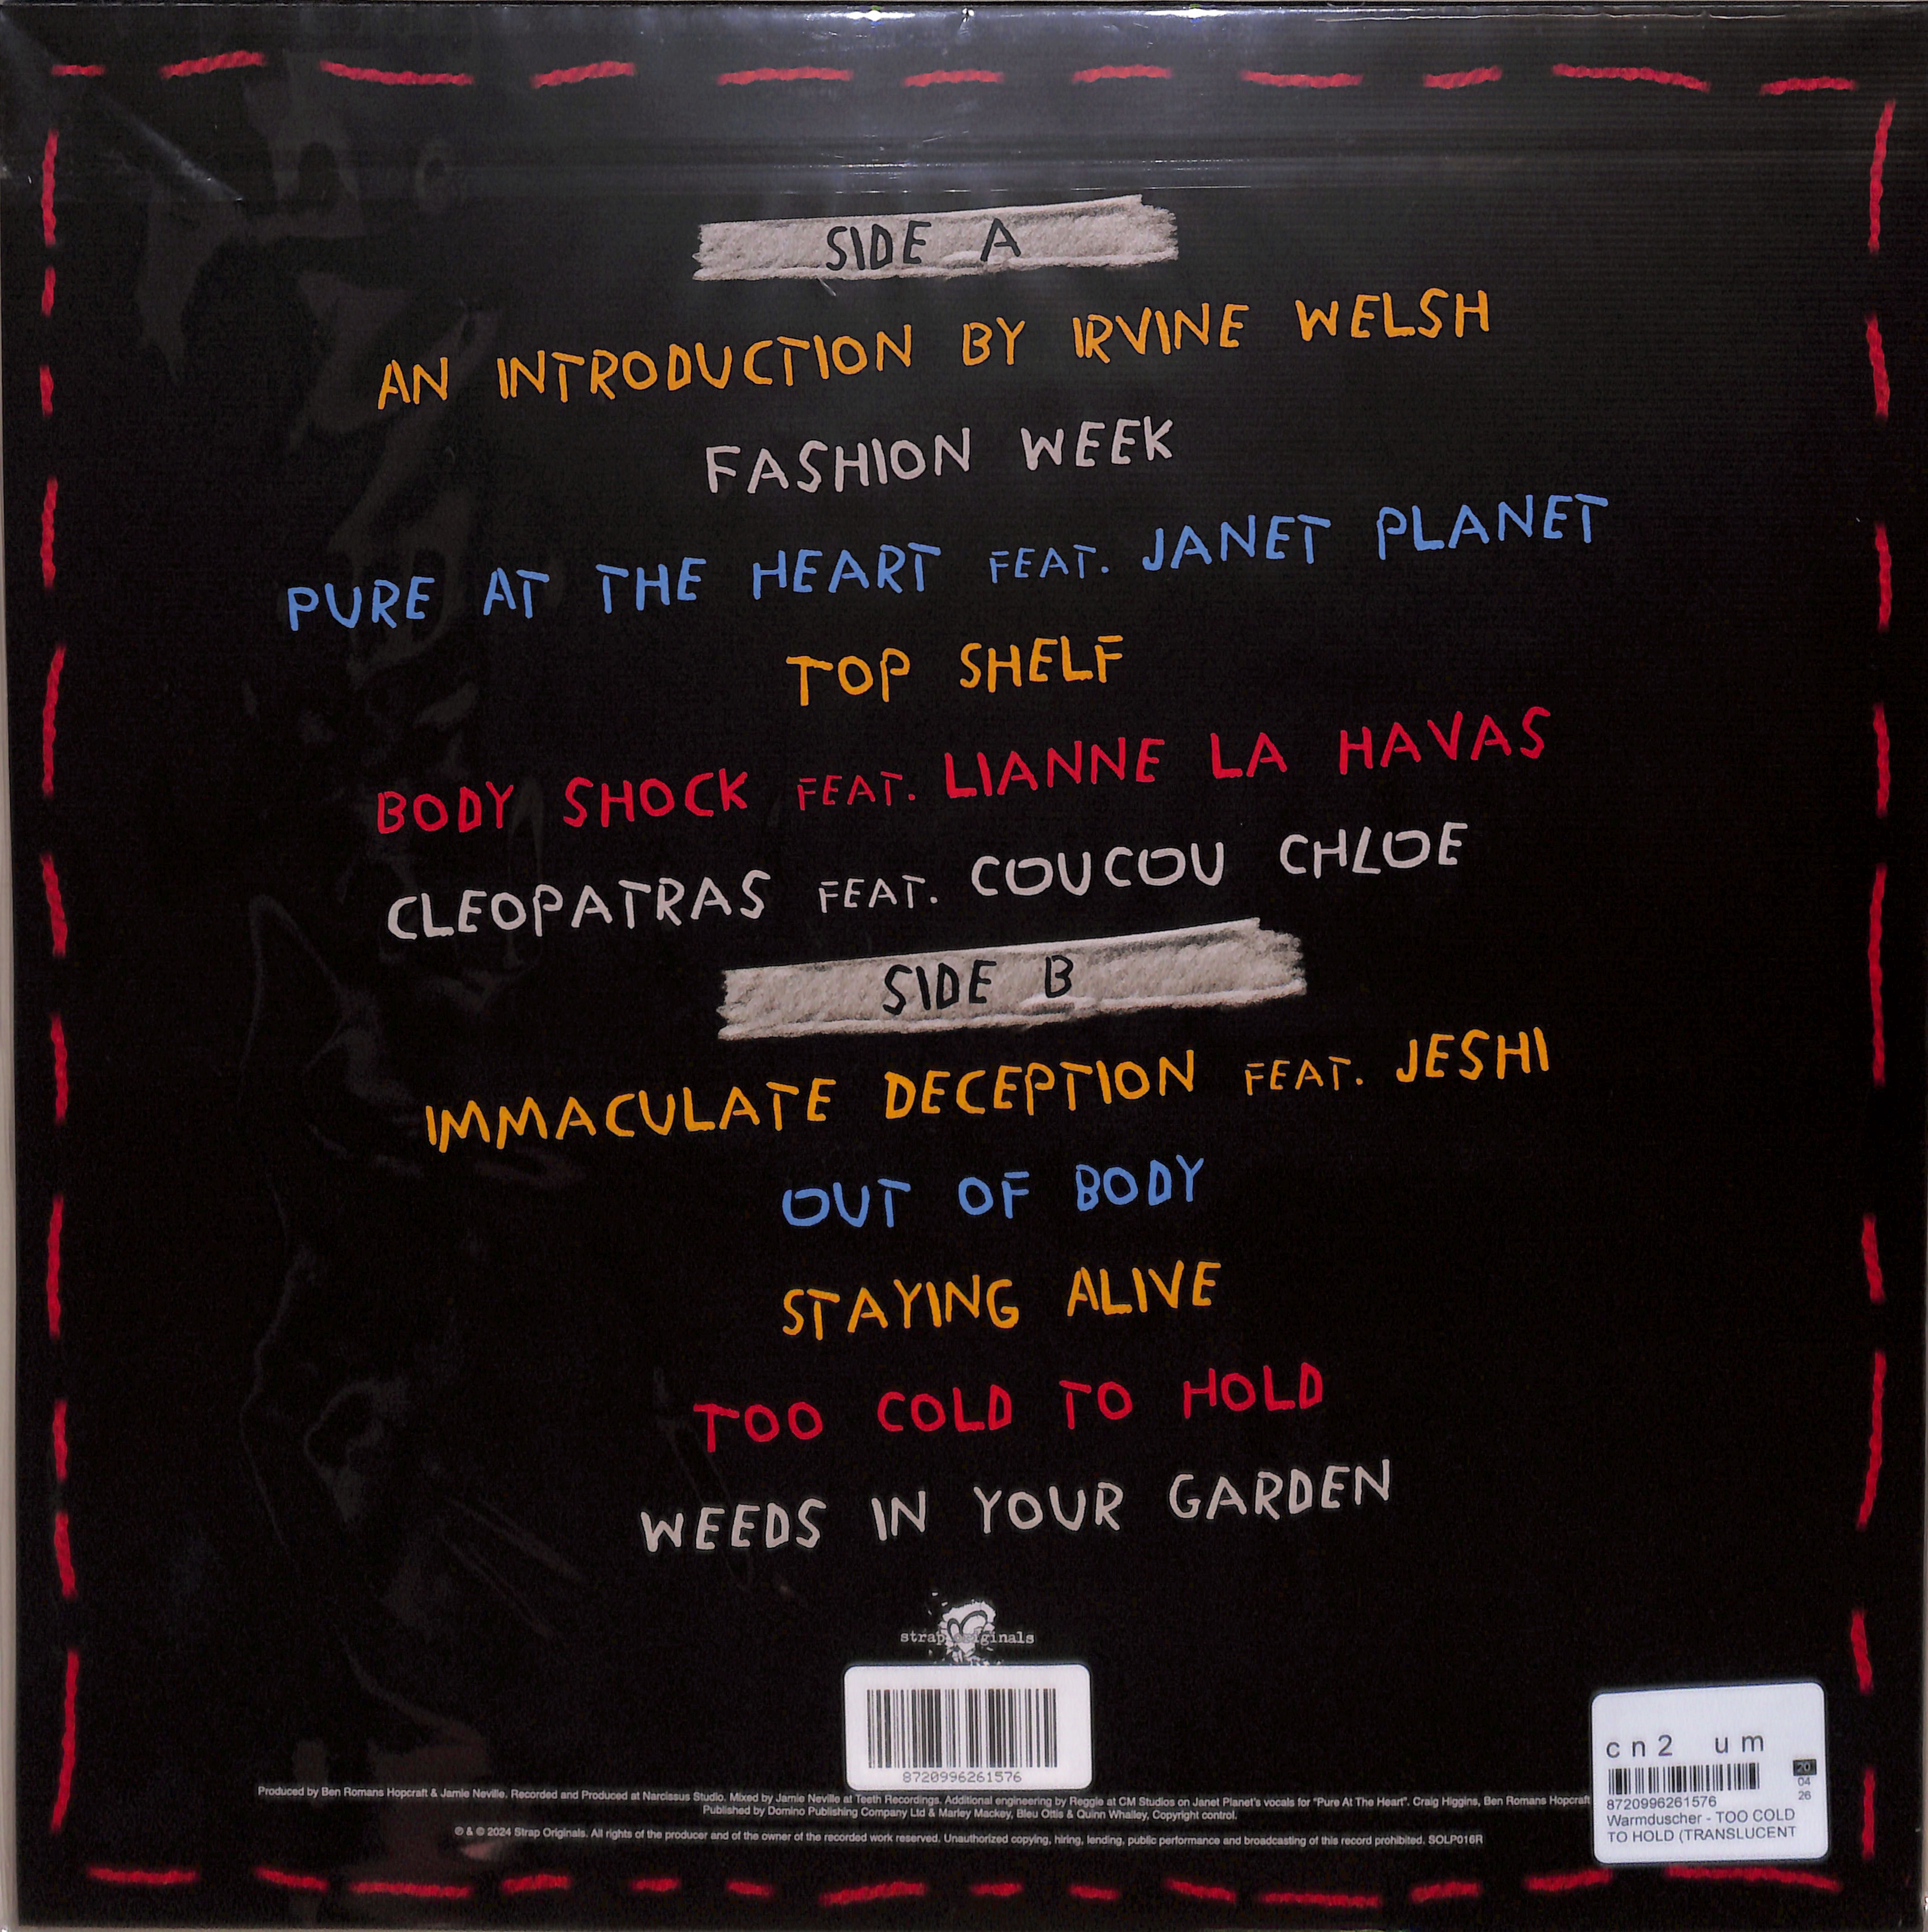 SIDE A
AN INTRODUCTION BY IRVINE WELSH
FASHION WEEK
PURE AT THE HEART FEAT. JANET PLANET
TOP SHELF
BODY SHOCK FEAT. LIANNE LA HAVAS
CLEOPATRAS FEAT. COUCOU CHLOE
SIDE B
IMMACULATE DECEPTION FEAT. JESHI
OUT OF BODY
STAYING ALIVE
TOO COLD TO HOLD
WEEDS IN YOUR GARDEN
strap originals
8720996261576
Produced by Ben Romans Hopcraft & Jamie Neville. Recorded and Produced at Narcissus Studio. Mixed by Jamie Neville at Teeth Recordings. Additional engineering by Reggie at CM Studios on Janet Planet's vocals for "Pure At The Heart". Craig Higgins, Ben Romans Hopcraft
Published by Domino Publishing Company Ltd & Marley Mackey, Bleu Ottis & Quinn Whalley, Copyright control.
℗ & © 2024 Strap Originals. All rights of the producer and of the owner of the recorded work reserved. Unauthorized copying, hiring, lending, public performance and broadcasting of this record prohibited. SOLP016R
cn2 um
20
04
26
8720996261576
Warmduscher - TOO COLD
TO HOLD (TRANSLUCENT